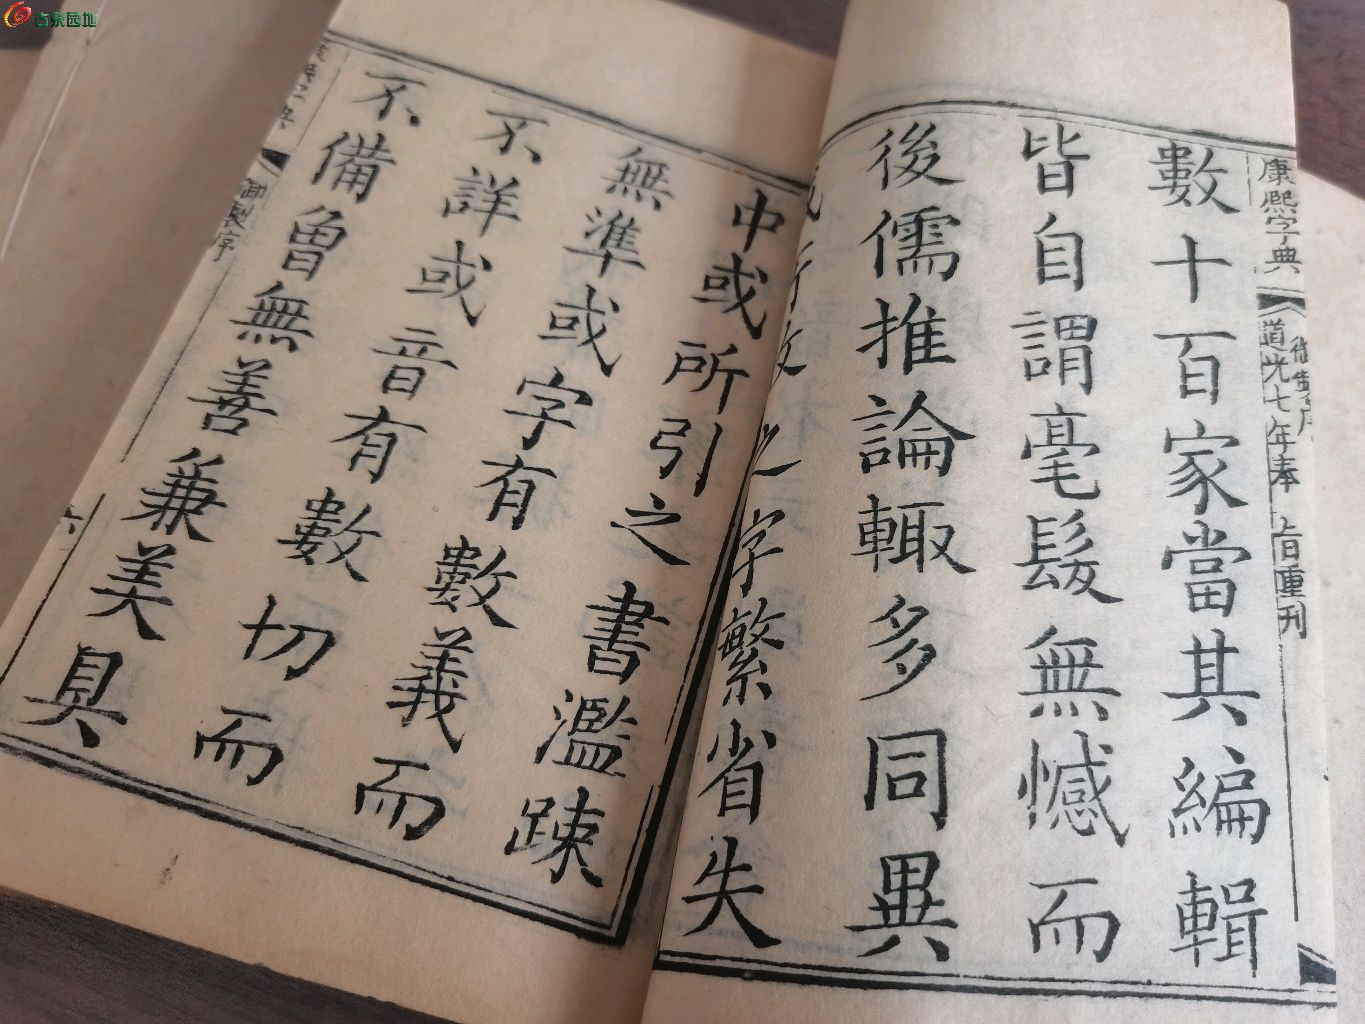 古泉园地
康熙字典
御製序
道光七年奉 上旨重刊
數十百家當其編輯
皆自謂毫髮無憾而
後儒推論輒多同異
或所收之字繁省失
中或所引之書濫踈
無準或字有數義而
不詳或音有數切而
不備曾無善兼美具
康熙字典
御製序
六